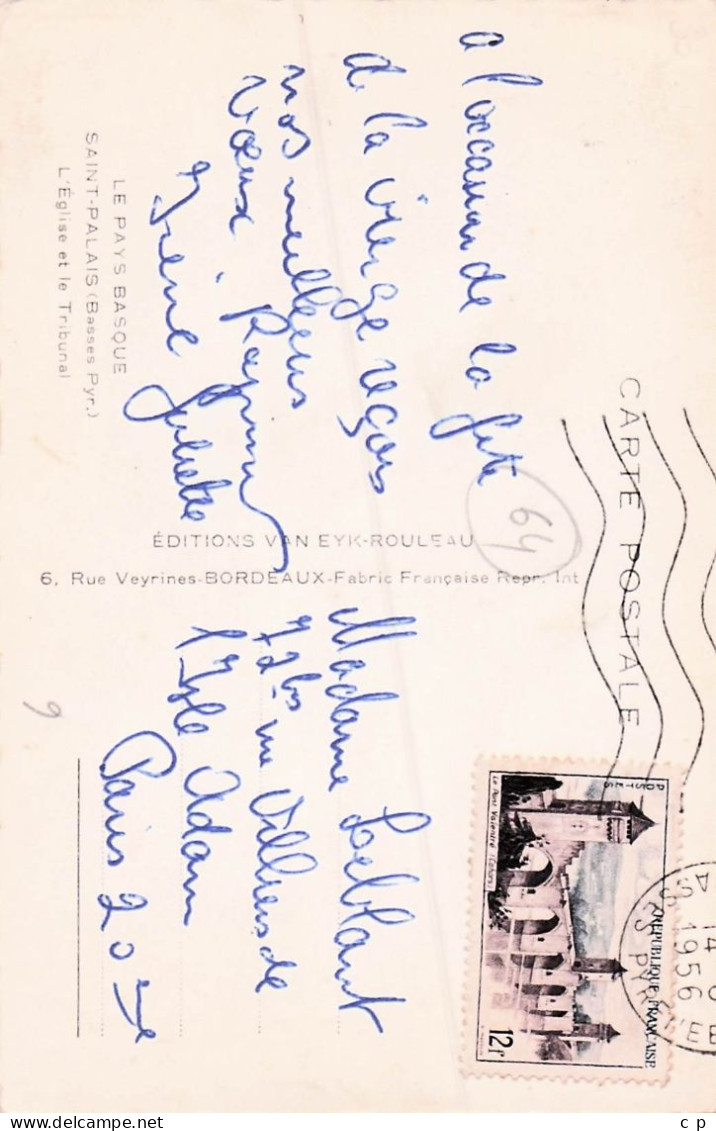 CARTE POSTALE
a l'occasion de la fête
de la vierge reçois
nos meilleurs
vœux
Irène Juliette
LE PAYS BASQUE
SAINT-PALAIS (Basses Pyr.)
L'Église et le Tribunal
ÉDITIONS VAN EYK-ROULEAU
6, Rue Veyrines-BORDEAUX-Fabric Française Repr. Int
64
POSTES
REPUBLIQUE FRANÇAISE
Le Pont Valentré (Cahors)
12f
14
1956
Madame Leblant
72 bis rue Villiers de
l'Isle Adam
Paris 20 eme
9
c p